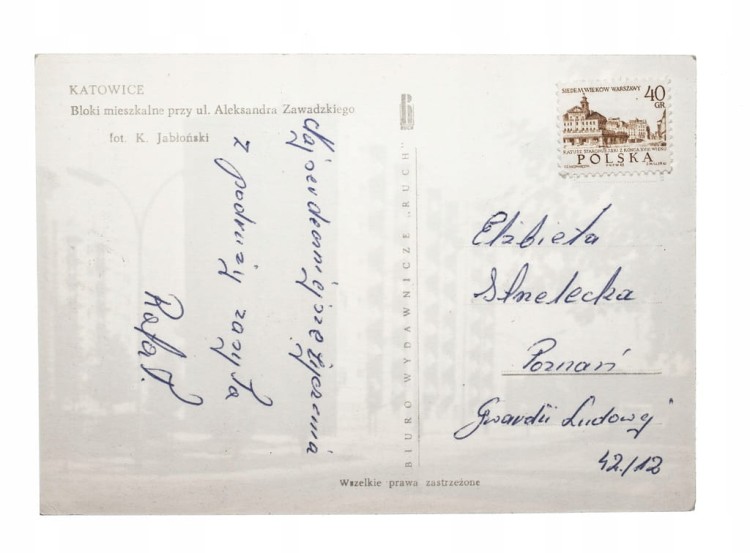 KATOWICE
Bloki mieszkalne przy ul. Aleksandra Zawadzkiego
fot. K. Jabłoński
Najserdeczniejsze życzenia
z podróży zasyła
Rafał.
BIURO WYDAWNICZE „RUCH”
SIEDEM WIEKÓW WARSZAWY
40
GR
RATUSZ STAROMIEJSKI Z KOŃCA XVIII WIEKU
POLSKA
Elżbieta
Strzelecka
Poznań
Gwardii Ludowej
42/12
Wszelkie prawa zastrzeżone